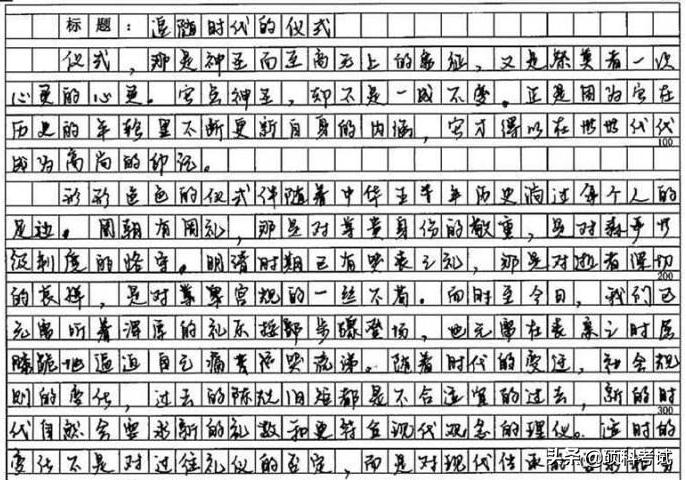 标题：追随时代的仪式
仪式，那是神圣而至高无上的象征，又是祭奠者一次
心灵的心灵。它虽神圣，却不是一成不变。正是因为它在
历史的年轮里不断更新自身的内涵，它才得以在世世代代
100
成为高尚的印记。
形形色色的仪式伴随着中华上下年历史淌过每个人的
足边。周朝有周礼，那是对尊贵身份的敬重，是对森严等
级制度的恪守。明清时期已有哭丧之礼，那是对逝者深切
200
的哀悼，是对繁琐宫规的一丝不苟。而时至今日，我们已
无需听着浑厚的礼乐摇步骤登场，也无需在丧亲之时屈
膝跪地逼迫自己痛哭流涕。随着时代的变迁，社会规
则的变化，过去的陈规旧矩都是不合适宜的过去，新的时
300
代自然会要求新的礼数和更符合现代观念的理仪。这时的
变化不是对过往礼仪的否定，而是对现代传承的
头条@硕科考试